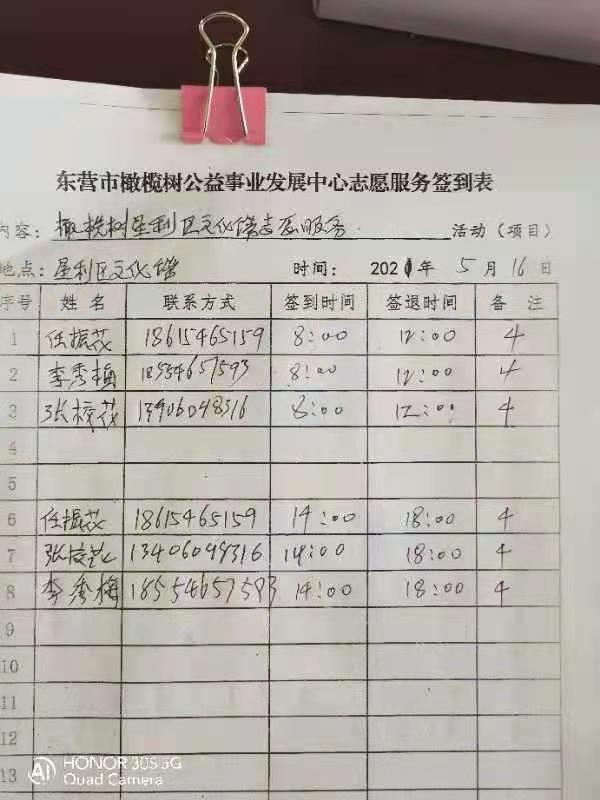 东营市橄榄树公益事业发展中心志愿服务签到表
内容：橄榄树垦利区文化馆志愿服务 活动（项目）
地点：垦利区文化馆 时间：2021年5月16日
序号 姓名 联系方式 签到时间 签退时间 备注
1 任振花 18615465159 8:00 12:00 4
2 李秀梅 18554657593 8:00 12:00 4
3 张校花 13406048316 8:00 12:00 4
4
5
6 任振花 18615465159 14:00 18:00 4
7 张校花 13406048316 14:00 18:00 4
8 李秀梅 18554657593 14:00 18:00 4
9
10
11
12
13
HONOR 30S 5G
Quad Camera